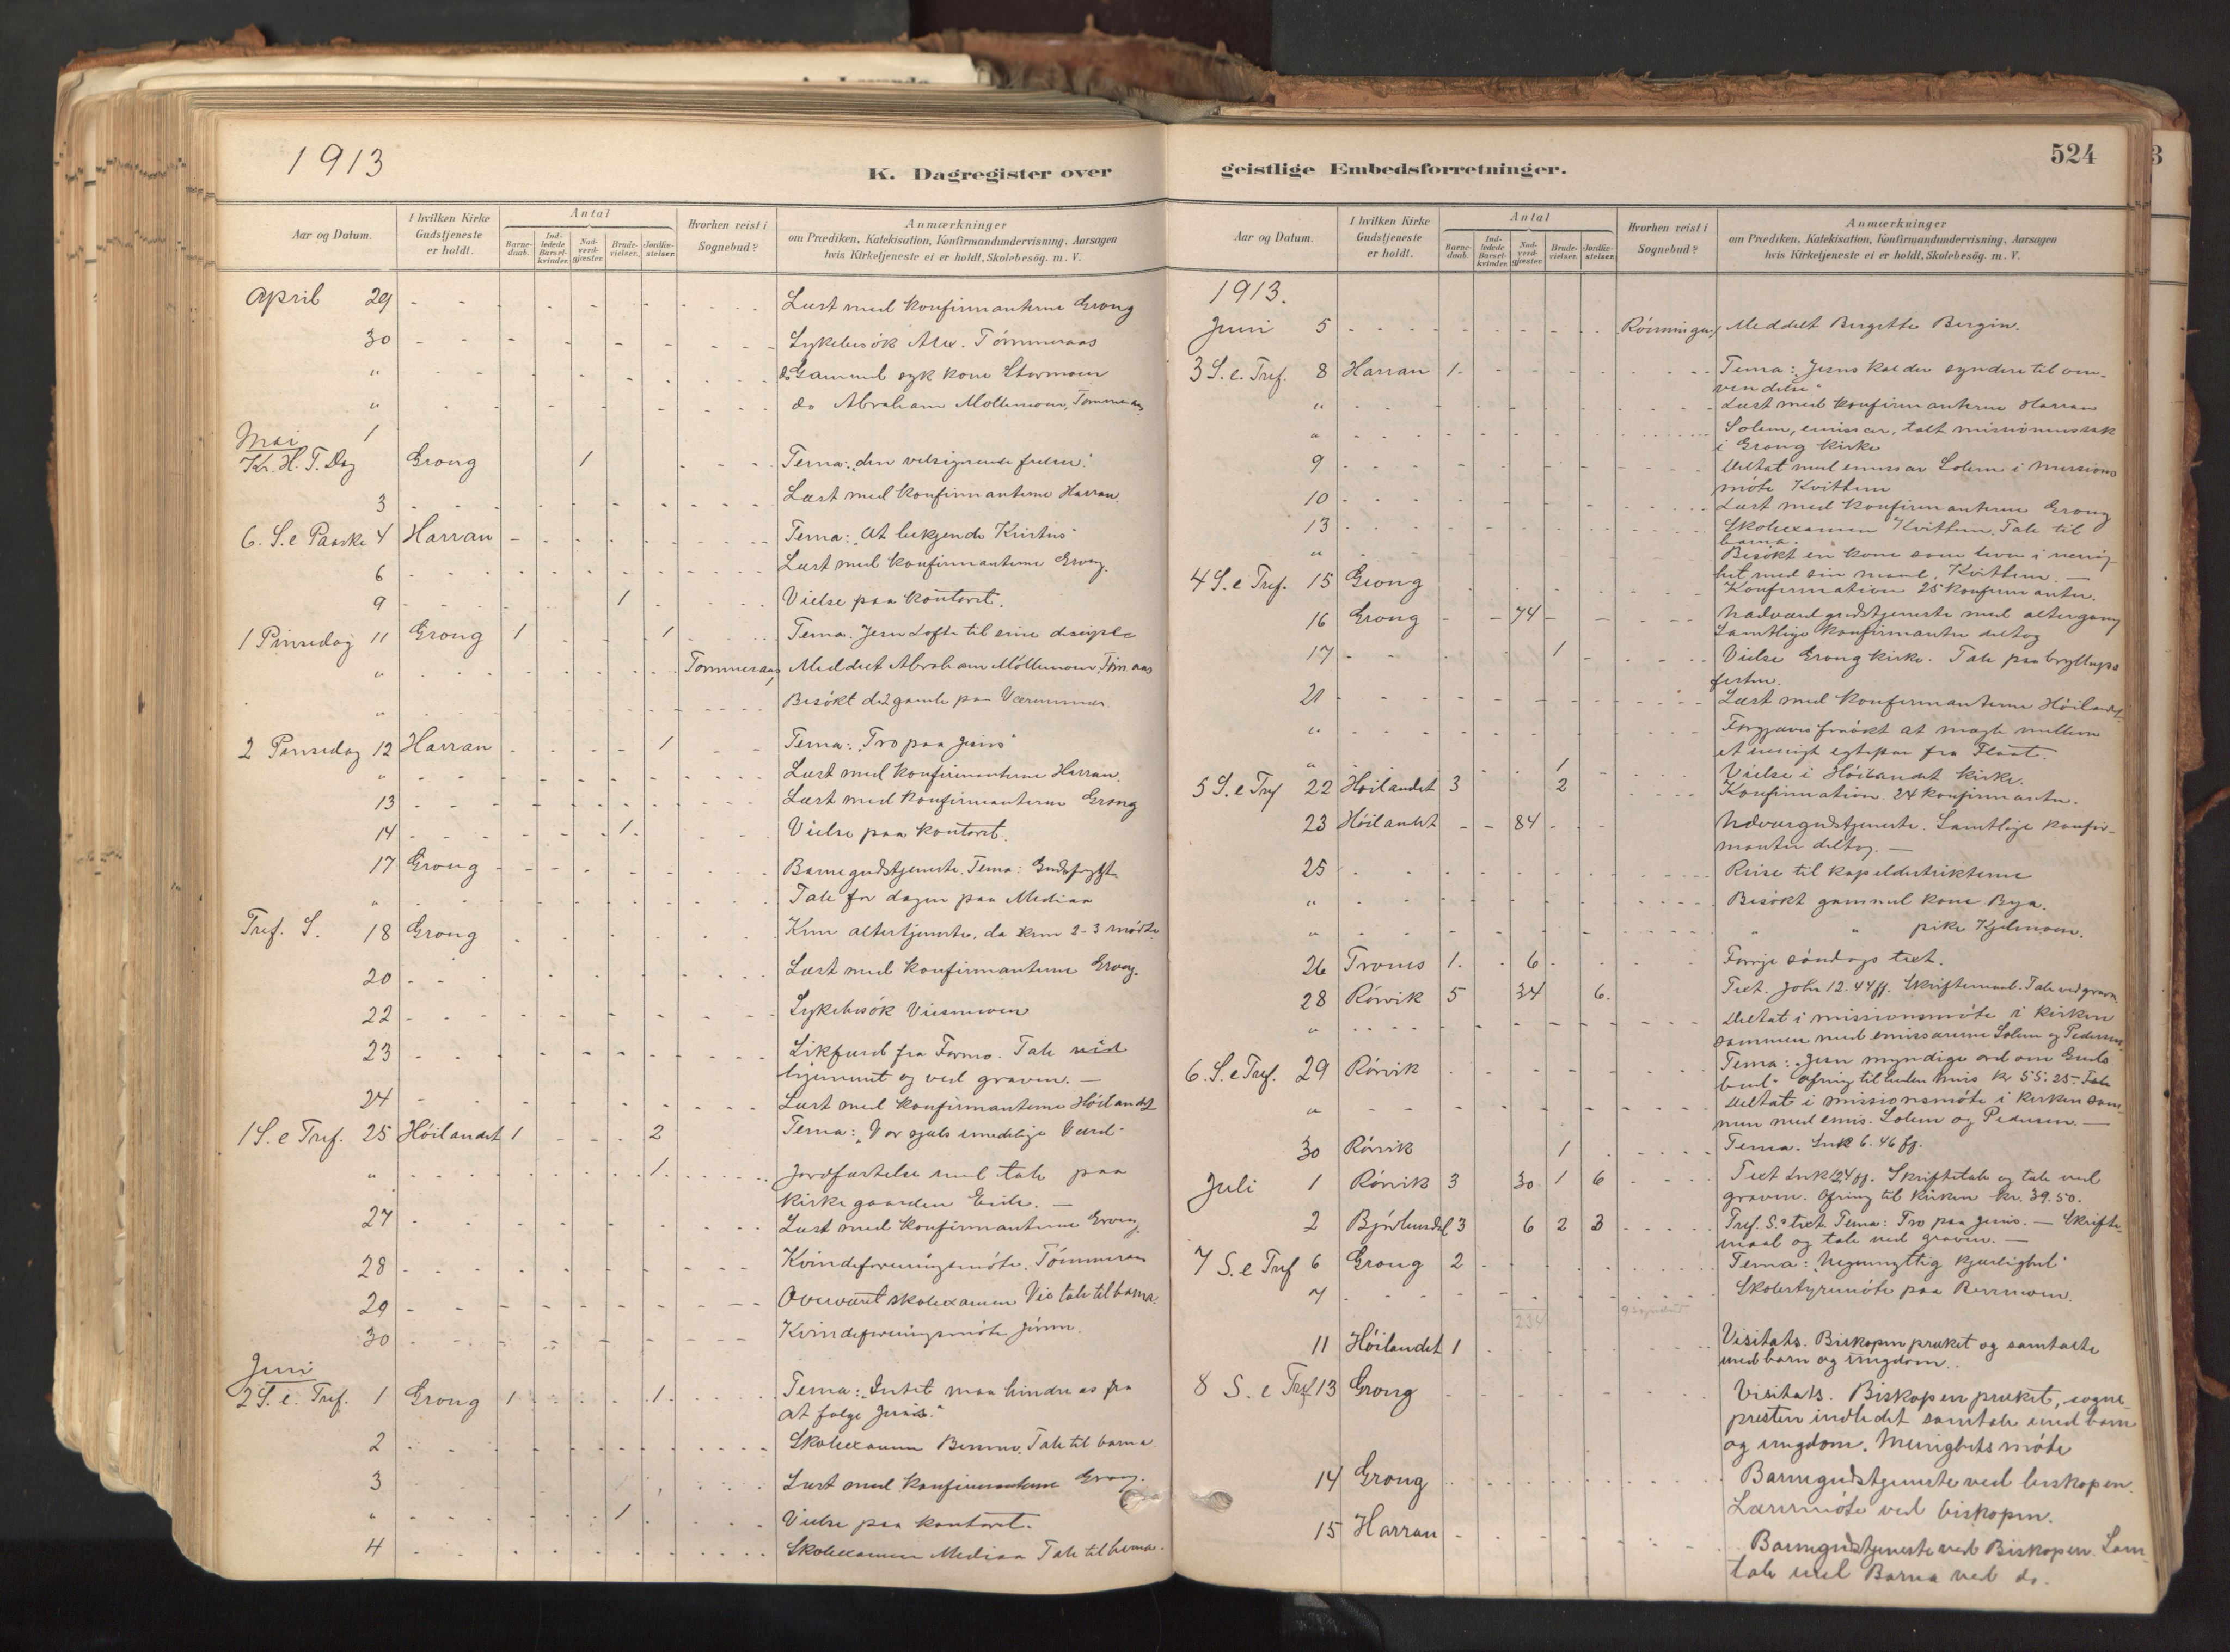 1913
K. Dagregister over
Aar og Datum.
I hvilken Kirke Gudstjeneste er holdt.
Antal
Barne-daab.
Ind-ledede Barsel-kvinder.
Nad-verd-gjæster.
Brude-vielser.
Jordfæ-stelser.
Hvorhen reist i Sognebud?
Anmærkninger
om Prædiken, Katekisation, Konfirmandundervisning, Aarsagen
hvis Kirketjeneste ei er holdt, Skolebesög. m. V.
April 29 Læst med konfirmanterne Grong
30 Sykebesøk Alex. Tömmeraas
" do Gammel syk kone Stormoen
" do Abraham Möllemoen, Tömmeraas
Mai 1
Kr. H. F. Dag Grong 1 Tema: "den velsignende frelser."
3 Læst med konfirmanterne Harran
6. S. e Paaske 4 Harran Tema: "At bekjende Kristus"
6 Læst med konfirmanterne Grong.
9 1 Vielse paa kontoret.
1 Pinsedag 11 Grong 1 1 Tema. Jesu Löfte til sine disiple
" Tømmeraas, Meddelt Abraham Möllemoen Töm.aas
" Besökt de 2 gamle paa Værummen
2 Pinsedag 12 Harran 1 Tema: "Tro paa Jesus"
" Læst med konfirmanterne Harran.
13 Læst med konfirmanterne Grong
14 1. Vielse paa kontoret.
17 Grong Barnegudstjeneste. Tema: Gudsfrygt.
" Tale for dagen paa Mediaa
Tref. S. 18 Grong Kun altertjeneste, da kun 2-3 mødte
20 Læst med konfirmanterne Grong.
22 Sykebesök Viemoen
23 Likfærd fra Formo. Tale ved
hjemmet og ved graven. —
24 Læst med konfirmanterne Höilandet
1 S. e Tref. 25 Höilandet 1 2 Tema: "Vor sjæls umedelige Værd"
" 1. Jordfæstelse med tale paa
kirkegaarden Eide. —
27 Læst med konfirmanterne Grong.
28 Kvindeforeningsmöte. Tömmeraas
29 Overværet skolexamen Vie tale til barna.
30 Kvindeforeningsmöte Jörum.
Juni
2 S. e. Tref. 1 Grong 1 1. Tema: "Intet maa hindre os fra
at følge Jesus."
2 Skolexamen Bermo. Tale til barna
3 Læst med konfirmanterne Grong.
" 1 Vielse paa kontoret.
4 Skolexamen Mediaa Tale til barna.
524
geistlige Embedsforretninger.
Aar og Datum.
I hvilken Kirke Gudstjeneste er holdt.
Antal
Barne-daab.
Ind-ledede Barsel-kvinder.
Nad-verd-gjæster.
Brude-vielser.
Jordfæ-stelser.
Hvorhen reist i Sognebud?
Anmærkninger
om Prædiken, Katekisation, Konfirmandundervisning, Aarsagen
hvis Kirketjeneste ei er holdt, Skolebesög. m. V.
1913.
Juni 5 Rönningen, Meddelt Birgitte Bergin.
3 S. e. Tref. 8 Harran 1. Tema: "Jesus kalder syndere til om-
vendelse"
" Læst med konfirmanterne Harran
" Solem, emissær, talt missionens sak
i Grong kirke
9 Deltat med emissær Solem i missions
möte Kvittem
10 Læst med konfirmanterne Grong
13 Skolexamen Kvittem. Tale til
barna.
" Besökt en kone som lever i uenig-
het med sin mand, Kvittem. —
4 S. e Tref. 15 Grong Konfirmation 25 konfirmanter.
16 Grong 74 Nadverdgudstjeneste med altergang
Samtlige konfirmanter deltog
17 1 Vielse Grong kirke. Tale paa bryllups
festen.
21 Læst med konfirmanterne Höilandet
" Forgjæves forsökt at mægle mellem
et uenigt egtepar fra Flaat.
" 1 Vielse i Höilandet kirke.
5 S. e Tref 22 Höilandet 3 2 Konfirmation. 24 konfirmanter.
23 Höilandet 84 Nadvergudstjeneste. Samtlige konfir-
manter deltog. —
25 Reise til kapeldistrikterne
" Besökt gammel kone Bya.
" " pike Kjelmoen.
26 Trones 1. 6 Forrige søndags text.
28 Rörvik 5 34 6. Text. Joh. 12. 44 ff. Skriftemaal. Tale ved graven
" Deltat i missionsmöte i kirken
sammen med emissærerne Solem og Pedersen
6. S. e Tref. 29 Rörvik Tema: "Jesu myndige ord om Guds
bud" Ofring til Luden Kr 55.25. Tale
" Deltat i missionsmöte i kirken sam-
men med emis. Solem og Pedersen. —
30 Rörvik 1 Tema. Luk 6. 46 fg.
Juli 1 Rörvik 3 30 1 6 Text Luk 12.4 ff. Skriftetale og tale ved
graven. Ofring til kirken kr. 39.50.
2 Björhusdal 3 6 2 3 Tref. S.s text. Tema: Tro paa Jesus. — Skrifte-
maal og tale ved graven. —
7 S. e Tref 6 Grong 2 Tema: "Uegennyttig kjærlighet"
7 Skolestyremöte paa Bermoen.
234
11 Höilandet 1 Visitats. Biskopen præket og samtalte
med barn og ungdom.
8 S. e Tref 13 Grong Visitats. Biskopen præket, sogne-
presten indledet samtale med barn
og ungdom. Menighetsmöte
14 Grong Barnegudstjeneste ved biskopen.
Lærermöte ved biskopen.
15 Harran Barnegudstjeneste ved Biskopen. Sam-
tale med Barna ved do.